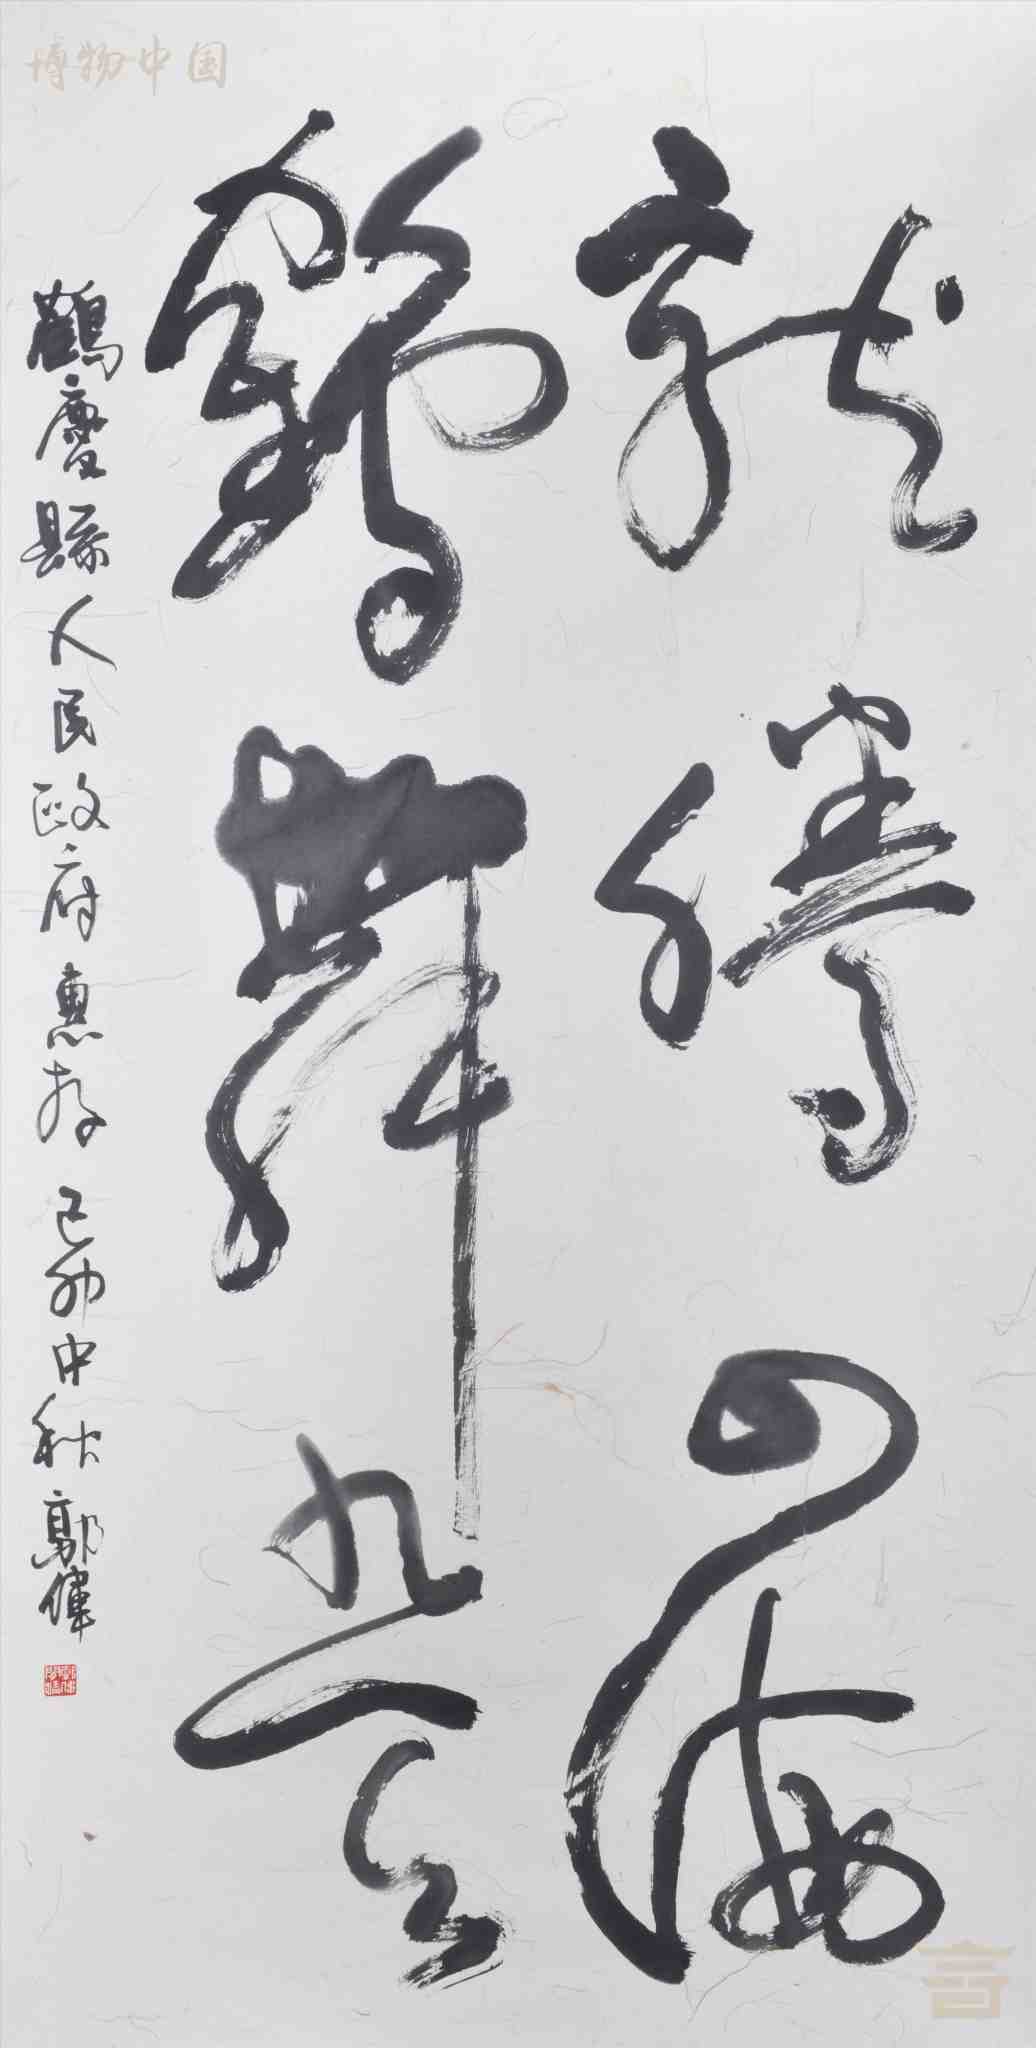 龙腾四海
鹤舞九天
鶴慶縣人民政府惠存 己卯中秋 郭偉
博物中国